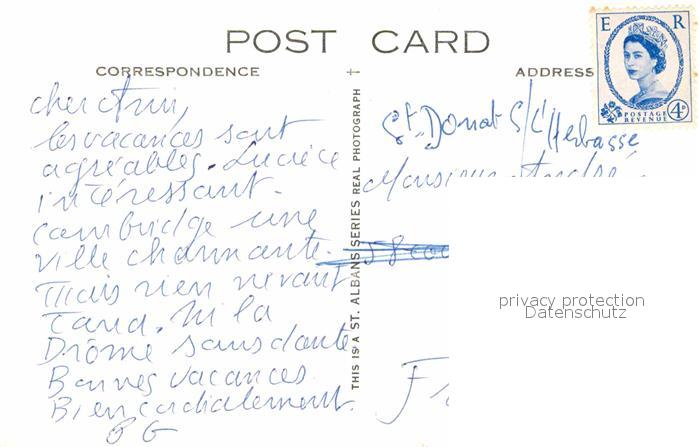 POST CARD
CORRESPONDENCE
ADDRESS
E R
POSTAGE
REVENUE
4D
THIS IS A ST. ALBANS SERIES REAL PHOTOGRAPH
cher Ami,
les vacances sont
agréables.
intéressant.
Cambridge une
ville charmante.
Mais rien ne vaut
ni la
Drôme sans doute
Bonnes vacances
Bien cordialement.
St. Donat S/L'Herbasse
Monsieur
privacy protection
Datenschutz